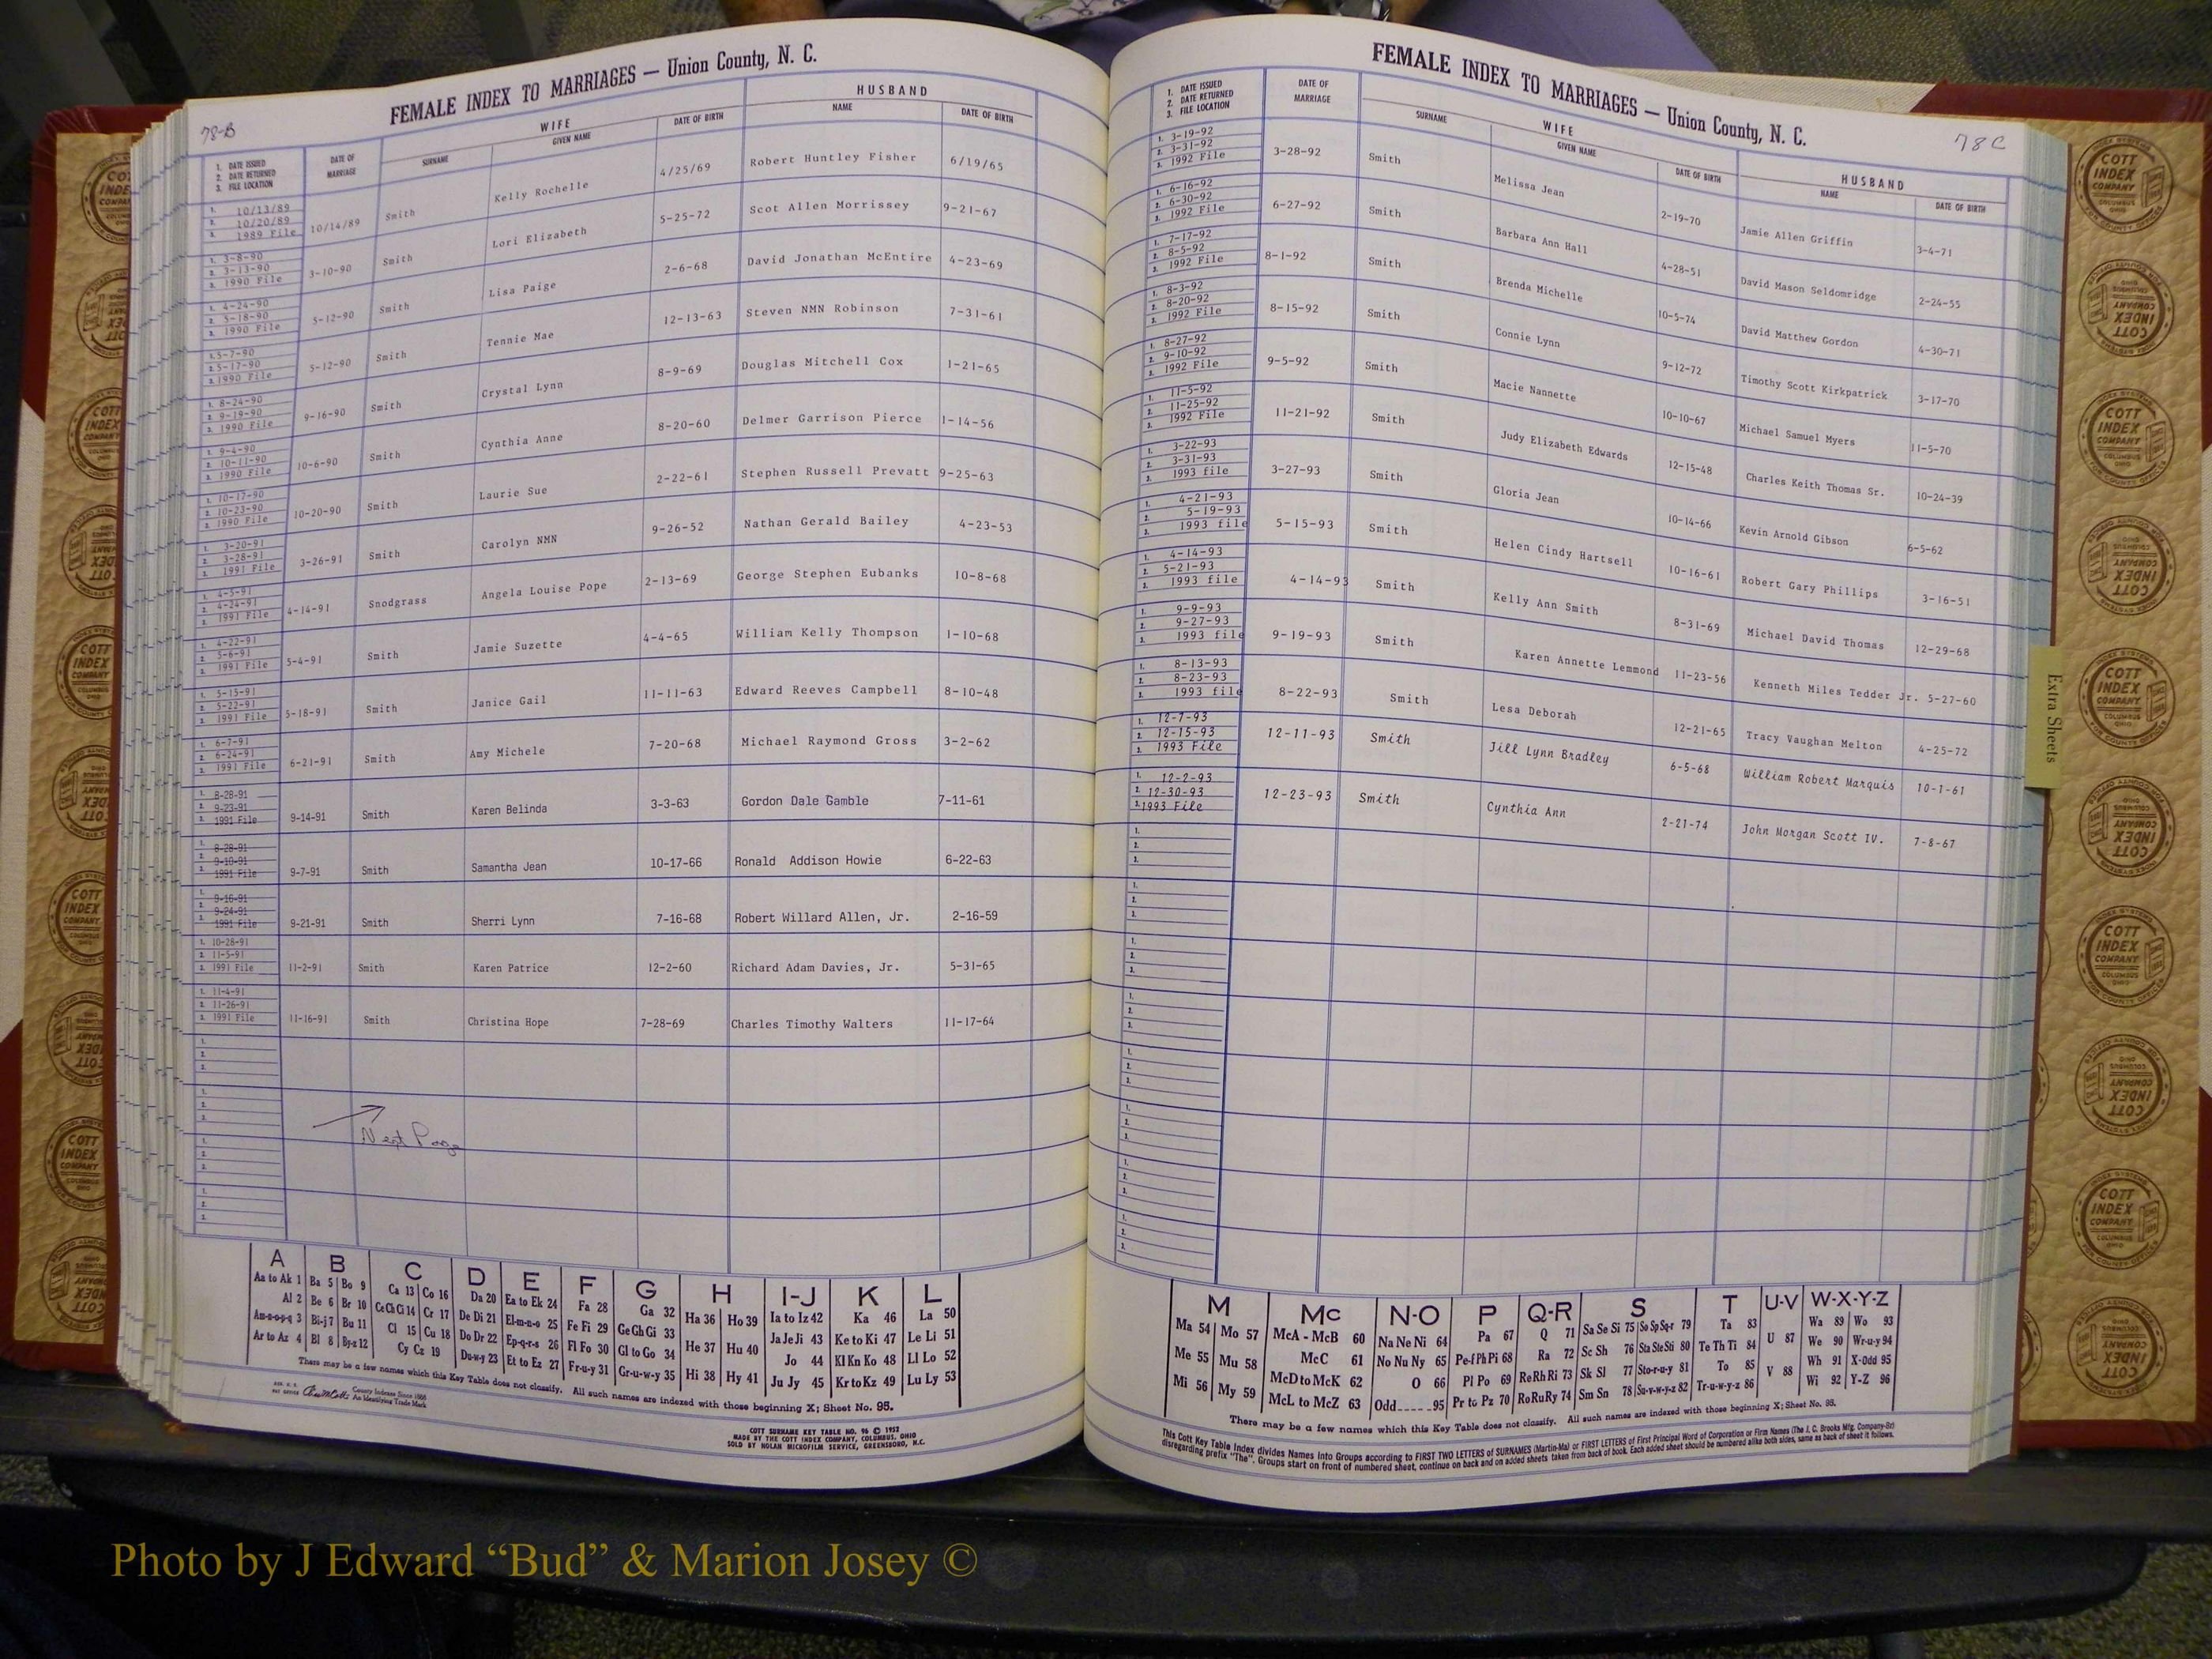 FEMALE INDEX TO MARRIAGES — Union County, N. C.
78-B
1. DATE ISSUED 2. DATE RETURNED 3. FILE LOCATION | DATE OF MARRIAGE | WIFE SURNAME | GIVEN NAME | DATE OF BIRTH | HUSBAND NAME | DATE OF BIRTH
1. 10/13/89 2. 10/20/89 3. 1989 File 10/14/89 Smith Kelly Rochelle 4/25/69 Robert Huntley Fisher 6/19/65
1. 3-8-90 2. 3-13-90 3. 1990 File 3-10-90 Smith Lori Elizabeth 5-25-72 Scot Allen Morrissey 9-21-67
1. 4-24-90 2. 5-18-90 3. 1990 File 5-12-90 Smith Lisa Paige 2-6-68 David Jonathan McEntire 4-23-69
1. 5-7-90 2. 5-17-90 3. 1990 File 5-12-90 Smith Tennie Mae 12-13-63 Steven NMN Robinson 7-31-61
1. 8-24-90 2. 9-19-90 3. 1990 File 9-16-90 Smith Crystal Lynn 8-9-69 Douglas Mitchell Cox 1-21-65
1. 9-4-90 2. 10-11-90 3. 1990 File 10-6-90 Smith Cynthia Anne 8-20-60 Delmer Garrison Pierce 1-14-56
1. 10-17-90 2. 10-23-90 3. 1990 File 10-20-90 Smith Laurie Sue 2-22-61 Stephen Russell Prevatt 9-25-63
1. 3-20-91 2. 3-28-91 3. 1991 File 3-26-91 Smith Carolyn NMN 9-26-52 Nathan Gerald Bailey 4-23-53
1. 4-5-91 2. 4-24-91 3. 1991 File 4-14-91 Snodgrass Angela Louise Pope 2-13-69 George Stephen Eubanks 10-8-68
1. 4-22-91 2. 5-6-91 3. 1991 File 5-4-91 Smith Jamie Suzette 4-4-65 William Kelly Thompson 1-10-68
1. 5-15-91 2. 5-22-91 3. 1991 File 5-18-91 Smith Janice Gail 11-11-63 Edward Reeves Campbell 8-10-48
1. 6-7-91 2. 6-24-91 3. 1991 File 6-21-91 Smith Amy Michele 7-20-68 Michael Raymond Gross 3-2-62
1. 8-28-91 2. 9-23-91 3. 1991 File 9-14-91 Smith Karen Belinda 3-3-63 Gordon Dale Gamble 7-11-61
1. 8-28-91 2. 9-10-91 3. 1991 File 9-7-91 Smith Samantha Jean 10-17-66 Ronald Addison Howie 6-22-63
1. 9-16-91 2. 9-24-91 3. 1991 File 9-21-91 Smith Sherri Lynn 7-16-68 Robert Willard Allen, Jr. 2-16-59
1. 10-28-91 2. 11-5-91 3. 1991 File 11-2-91 Smith Karen Patrice 12-2-60 Richard Adam Davies, Jr. 5-31-65
1. 11-4-91 2. 11-26-91 3. 1991 File 11-16-91 Smith Christina Hope 7-28-69 Charles Timothy Walters 11-17-64
Next Page
A B C D E F G H I-J K L
Aa to Ak 1 Ba 5 Bo 9 Ca 13 Co 16 Da 20 Ea to Ek 24 Fa 28 Ga 32 Ha 36 Ho 39 Ia to Iz 42 Ka 46 La 50
Al 2 Be 6 Br 10 Ce Ch Ci 14 Cr 17 De Di 21 El-m-n-o 25 Fe Fi 29 Ge Gh Gi 33 He 37 Hu 40 Ja Je Ji 43 Ke to Ki 47 Le Li 51
Am-n-o-p-q 3 Bi-j 7 Bu 11 Cl 15 Cu 18 Do Dr 22 Ep-q-r-s 26 Fl Fo 30 Gl to Go 34 Hi 38 Hy 41 Jo 44 Kl Kn Ko 48 Ll Lo 52
Ar to Az 4 Bl 8 By-z 12 Cy Cz 19 Du-w-y 23 Et to Ez 27 Fr-u-y 31 Gr-u-w-y 35 Ju Jy 45 Kr to Kz 49 Lu Ly 53
There may be a few names which this Key Table does not classify. All such names are indexed with those beginning X; Sheet No. 95.
County Indexes Since 1888
An Identifying Trade Mark
COTT SURNAME KEY TABLE NO. 96 © 1953
MADE BY THE COTT INDEX COMPANY, COLUMBUS, OHIO
SOLD BY NOLAN MICROFILM SERVICE, GREENSBORO, N.C.
FEMALE INDEX TO MARRIAGES — Union County, N. C.
78C
1. DATE ISSUED 2. DATE RETURNED 3. FILE LOCATION | DATE OF MARRIAGE | WIFE SURNAME | GIVEN NAME | DATE OF BIRTH | HUSBAND NAME | DATE OF BIRTH
1. 3-19-92 2. 3-31-92 3. 1992 File 3-28-92 Smith Melissa Jean 2-19-70 Jamie Allen Griffin 3-4-71
1. 6-16-92 2. 6-30-92 3. 1992 File 6-27-92 Smith Barbara Ann Hall 4-28-51 David Mason Seldomridge 2-24-55
1. 7-17-92 2. 8-5-92 3. 1992 File 8-1-92 Smith Brenda Michelle 10-5-74 David Matthew Gordon 4-30-71
1. 8-3-92 2. 8-20-92 3. 1992 File 8-15-92 Smith Connie Lynn 9-12-72 Timothy Scott Kirkpatrick 3-17-70
1. 8-27-92 2. 9-10-92 3. 1992 File 9-5-92 Smith Macie Nannette 10-10-67 Michael Samuel Myers 11-5-70
1. 11-5-92 2. 11-25-92 3. 1992 File 11-21-92 Smith Judy Elizabeth Edwards 12-15-48 Charles Keith Thomas Sr. 10-24-39
1. 3-22-93 2. 3-31-93 3. 1993 file 3-27-93 Smith Gloria Jean 10-14-66 Kevin Arnold Gibson 6-5-62
1. 4-21-93 2. 5-19-93 3. 1993 file 5-15-93 Smith Helen Cindy Hartsell 10-16-61 Robert Gary Phillips 3-16-51
1. 4-14-93 2. 5-21-93 3. 1993 file 4-14-93 Smith Kelly Ann Smith 8-31-69 Michael David Thomas 12-29-68
1. 9-9-93 2. 9-27-93 3. 1993 file 9-19-93 Smith Karen Annette Lemmond 11-23-56 Kenneth Miles Tedder Jr. 5-27-60
1. 8-13-93 2. 8-23-93 3. 1993 file 8-22-93 Smith Lesa Deborah 12-21-65 Tracy Vaughan Melton 4-25-72
1. 12-7-93 2. 12-15-93 3. 1993 File 12-11-93 Smith Jill Lynn Bradley 6-5-68 William Robert Marquis 10-1-61
1. 12-2-93 2. 12-30-93 3. 1993 File 12-23-93 Smith Cynthia Ann 2-21-74 John Morgan Scott IV. 7-8-67
Extra Sheets
M Mc N-O P Q-R S T U-V W-X-Y-Z
Ma 54 Mo 57 McA - McB 60 Na Ne Ni 64 Pa 67 Q 71 Sa Se Si 75 So Sp Sq-r 79 Ta 83 U 87 Wa 89 Wo 93
Me 55 Mu 58 McC 61 No Nu Ny 65 Pe-f Ph Pi 68 Ra 72 Sc Sh 76 Sta Ste Sti 80 Te Th Ti 84 V 88 We 90 Wr-u-y 94
Mi 56 My 59 McD to McK 62 O 66 Pl Po 69 Re Rh Ri 73 Sk Sl 77 Sto-r-u-y 81 To 85 Wh 91 X-Odd 95
McL to McZ 63 Odd 95 Pr to Pz 70 Ro Ru Ry 74 Sm Sn 78 Su-v-w-y-z 82 Tr-u-w-y-z 86 Wi 92 Y-Z 96
There may be a few names which this Key Table does not classify. All such names are indexed with those beginning X; Sheet No. 95.
This Cott Key Table Index divides Names into Groups according to FIRST TWO LETTERS of SURNAMES (Martin-Ma) or FIRST LETTERS of First Principal Word of Corporation or Firm Names (The J. C. Brooks Mfg. Company-Br)
disregarding prefix "The". Groups start on front of numbered sheet, continue on back and on added sheets taken from back of book. Each added sheet should be numbered alike both sides, same as back of sheet it follows.
COTT INDEX COMPANY COLUMBUS OHIO
Photo by J Edward “Bud” & Marion Josey ©